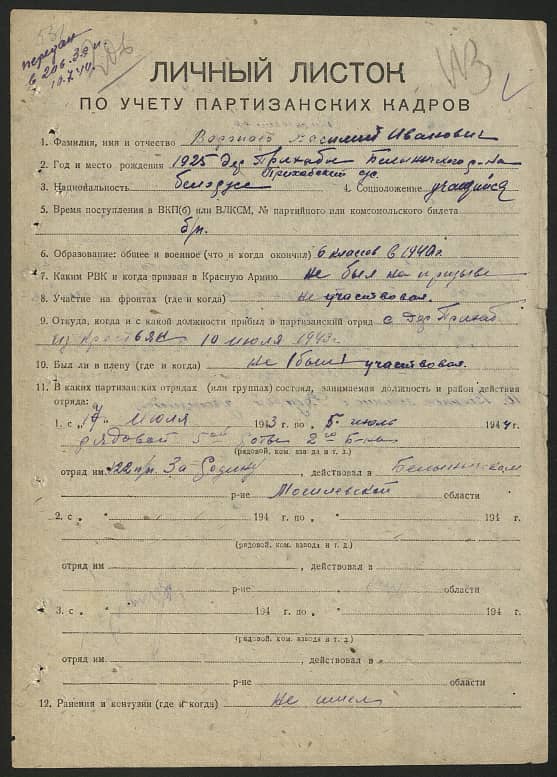 передан
в 206.з.п
10.7.44.
206
ЛИЧНЫЙ ЛИСТОК
ПО УЧЕТУ ПАРТИЗАНСКИХ КАДРОВ
1. Фамилия, имя и отчество Иванович
2. Год и место рождения 1925 дер. Прихабы Белыничского р-на
Прихабский с/с
3. Национальность белорус 4. Соцположение учащийся
5. Время поступления в ВКП(б) или ВЛКСМ, № партийного или комсомольского билета
б/п.
6. Образование: общее и военное (что и когда окончил) 6 классов в 1940 г.
7. Каким РВК и когда призван в Красную Армию не был на призыве
8. Участие на фронтах (где и когда) не участвовал.
9. Откуда, когда и с какой должности прибыл в партизанский отряд с дер. Прихаб.
из крестьян 10 июля 1943 г.
10. Был ли в плену (где и когда) не был участвовал.
11. В каких партизанских отрядах (или группах) состоял, занимаемая должность и район действия
отряда:
1. с „17" июля 1943 г. по „5" июль 1944 г.
рядовой 5ой роты 2го б-на
(рядовой, ком. взвода и т. д.)
отряд им. 122 п/п. За Родину, действовал в Белыническом
р-не Могилевской области
2. с „ " 194 г. по „ " 194 г.
(рядовой, ком. взвода и т. д.)
отряд им , действовал в
р-не области
3. с „ " 194 г. по „ " 194 г.
(рядовой, ком. взвода и т. д.)
отряд им , действовал в
р-не области
12. Ранения и контузии (где и когда) не имел